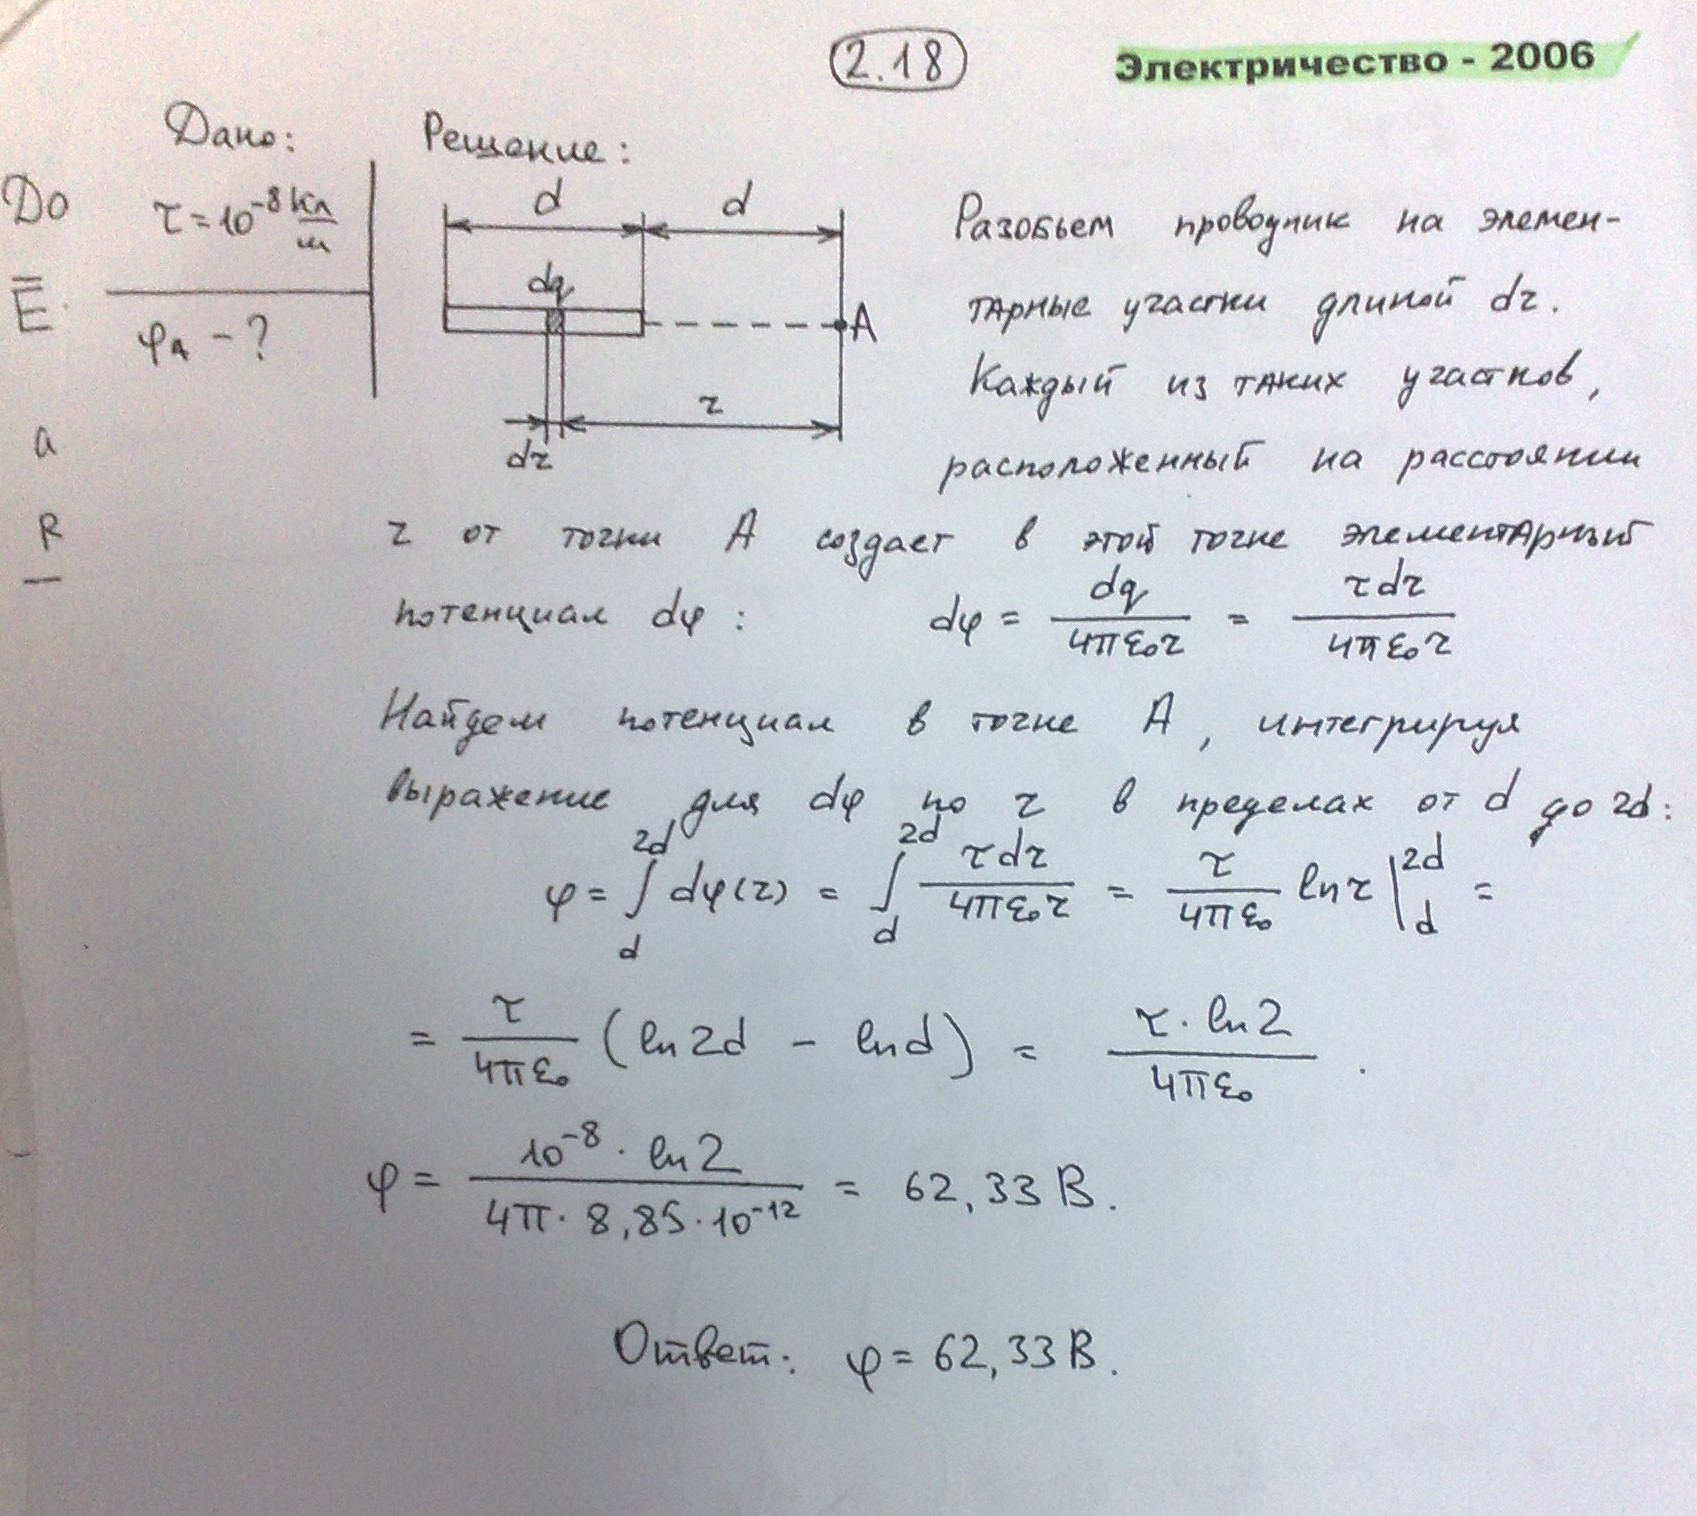 2.18
Электричество - 2006
Дано:
Решение:
До
τ = 10⁻⁸ Кл/м
Ē
φA - ?
a
R
d d
dq
A
r
dr
Разобьем проводник на элемен-
тарные участки длиной dr.
Каждый из таких участков,
расположенный на расстоянии
r от точки A создает в этой точке элементарный
потенциал dφ: dφ = dq/4πε₀r = τdr/4πε₀r
Найдем потенциал в точке A, интегрируя
выражение для dφ по r в пределах от d до 2d:
φ = ∫_d^2d dφ(r) = ∫_d^2d τdr/4πε₀r = τ/4πε₀ ln r |_d^2d =
= τ/4πε₀ (ln2d - lnd) = τ · ln2/4πε₀.
φ = 10⁻⁸ · ln2/4π · 8,85 · 10⁻¹² = 62,33 В.
Ответ: φ = 62,33 В.